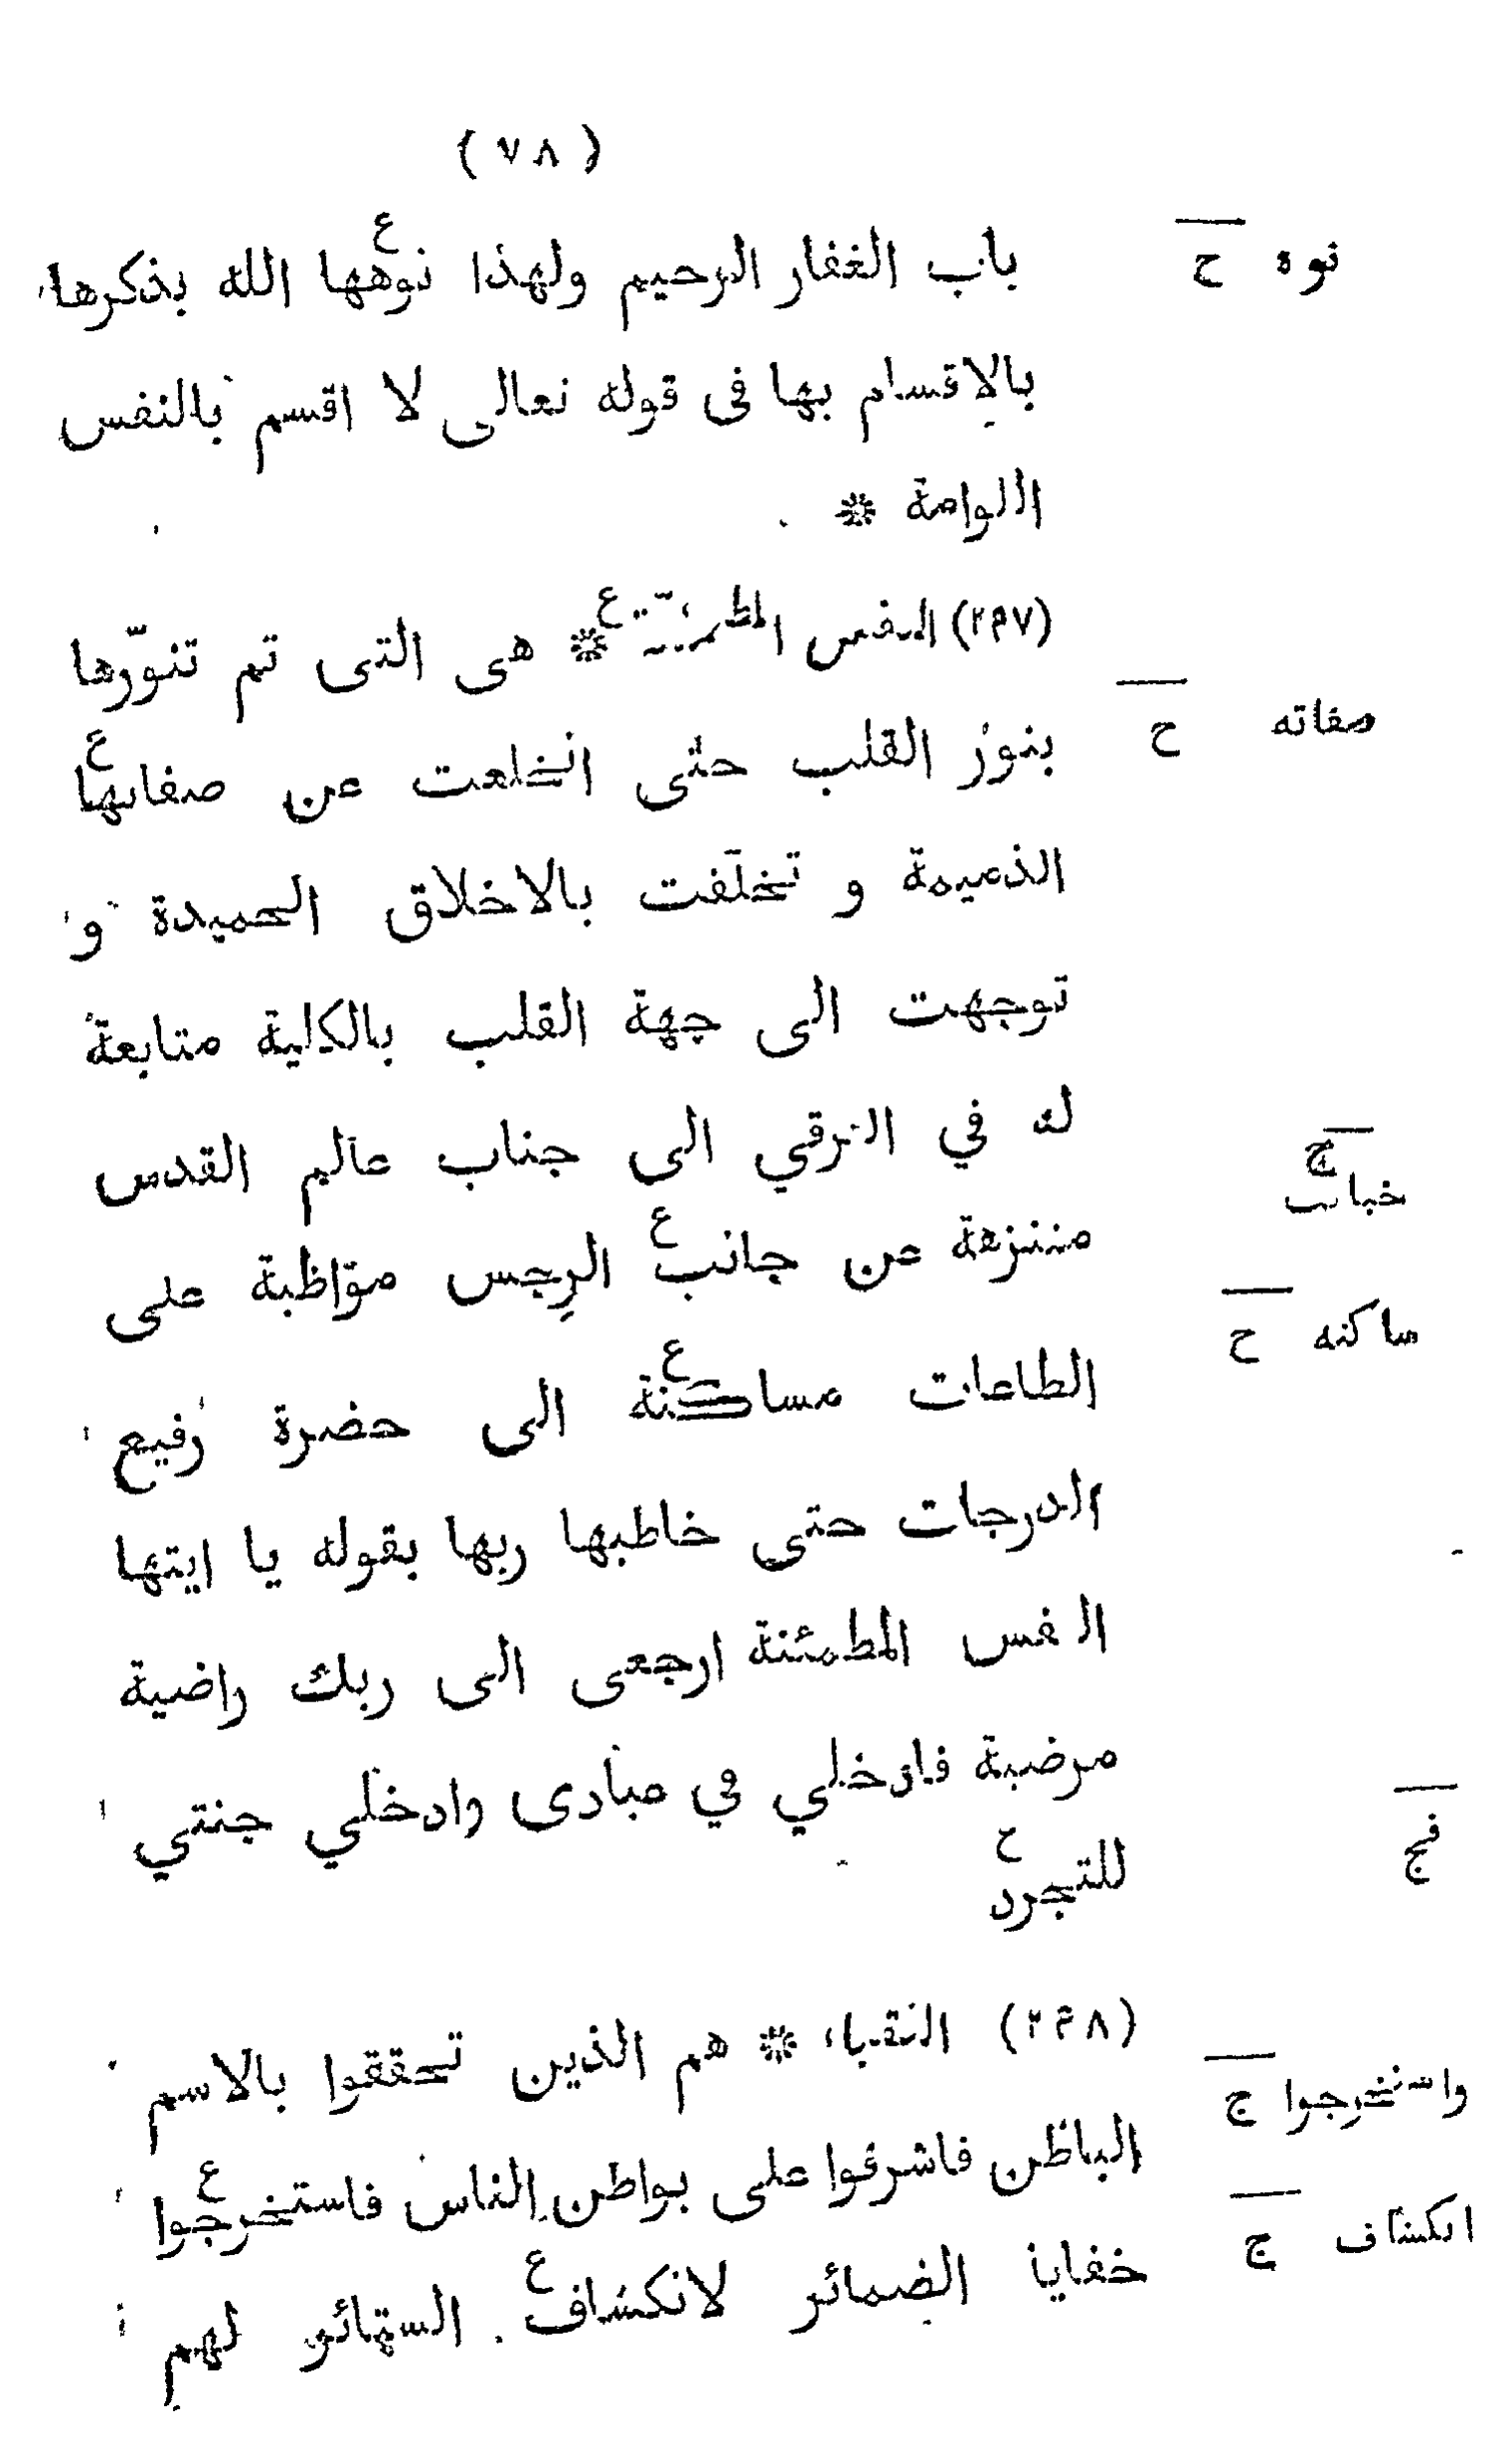 ( ٧٨ )
باب الغفار الرحيم ولهذا نوهها ع الله بذكرها
نوه ح
بالاقسام بها فى قوله تعالى لا اقسم بالنفس
اللوامة *
(٢٩٧) النفس المطمئنّة ع * هى التى تم تنوّرها
بنور القلب حتى انخلعت عن صفاتها ع
صفاته ح
الذميمة و تخلّقت بالاخلاق الحميدة و
توجهت الى جهة القلب بالكلية متابعة
له في الترقي الى جناب عالم القدس
متنزهة عن جانب ع الرجس مواظبة على
ج
خبائب
الطاعات مساكنة ع الى حضرة رفيع
ساكنه ح
الدرجات حتى خاطبها ربها بقوله يا ايتها
النفس المطمئنة ارجعى الى ربك راضية
مرضية فادخلي في عبادى وادخلي جنتي
للتجرد ح
فج
(٢٩٨) النقباء * هم الذين تحققوا بالاسم
الباطن فاشرفوا على بواطن الناس فاستخرجوا ع
واستخرجوا ج
خفايا الضمائر لانكشاف ع الستائر لهم
انكشاف ج